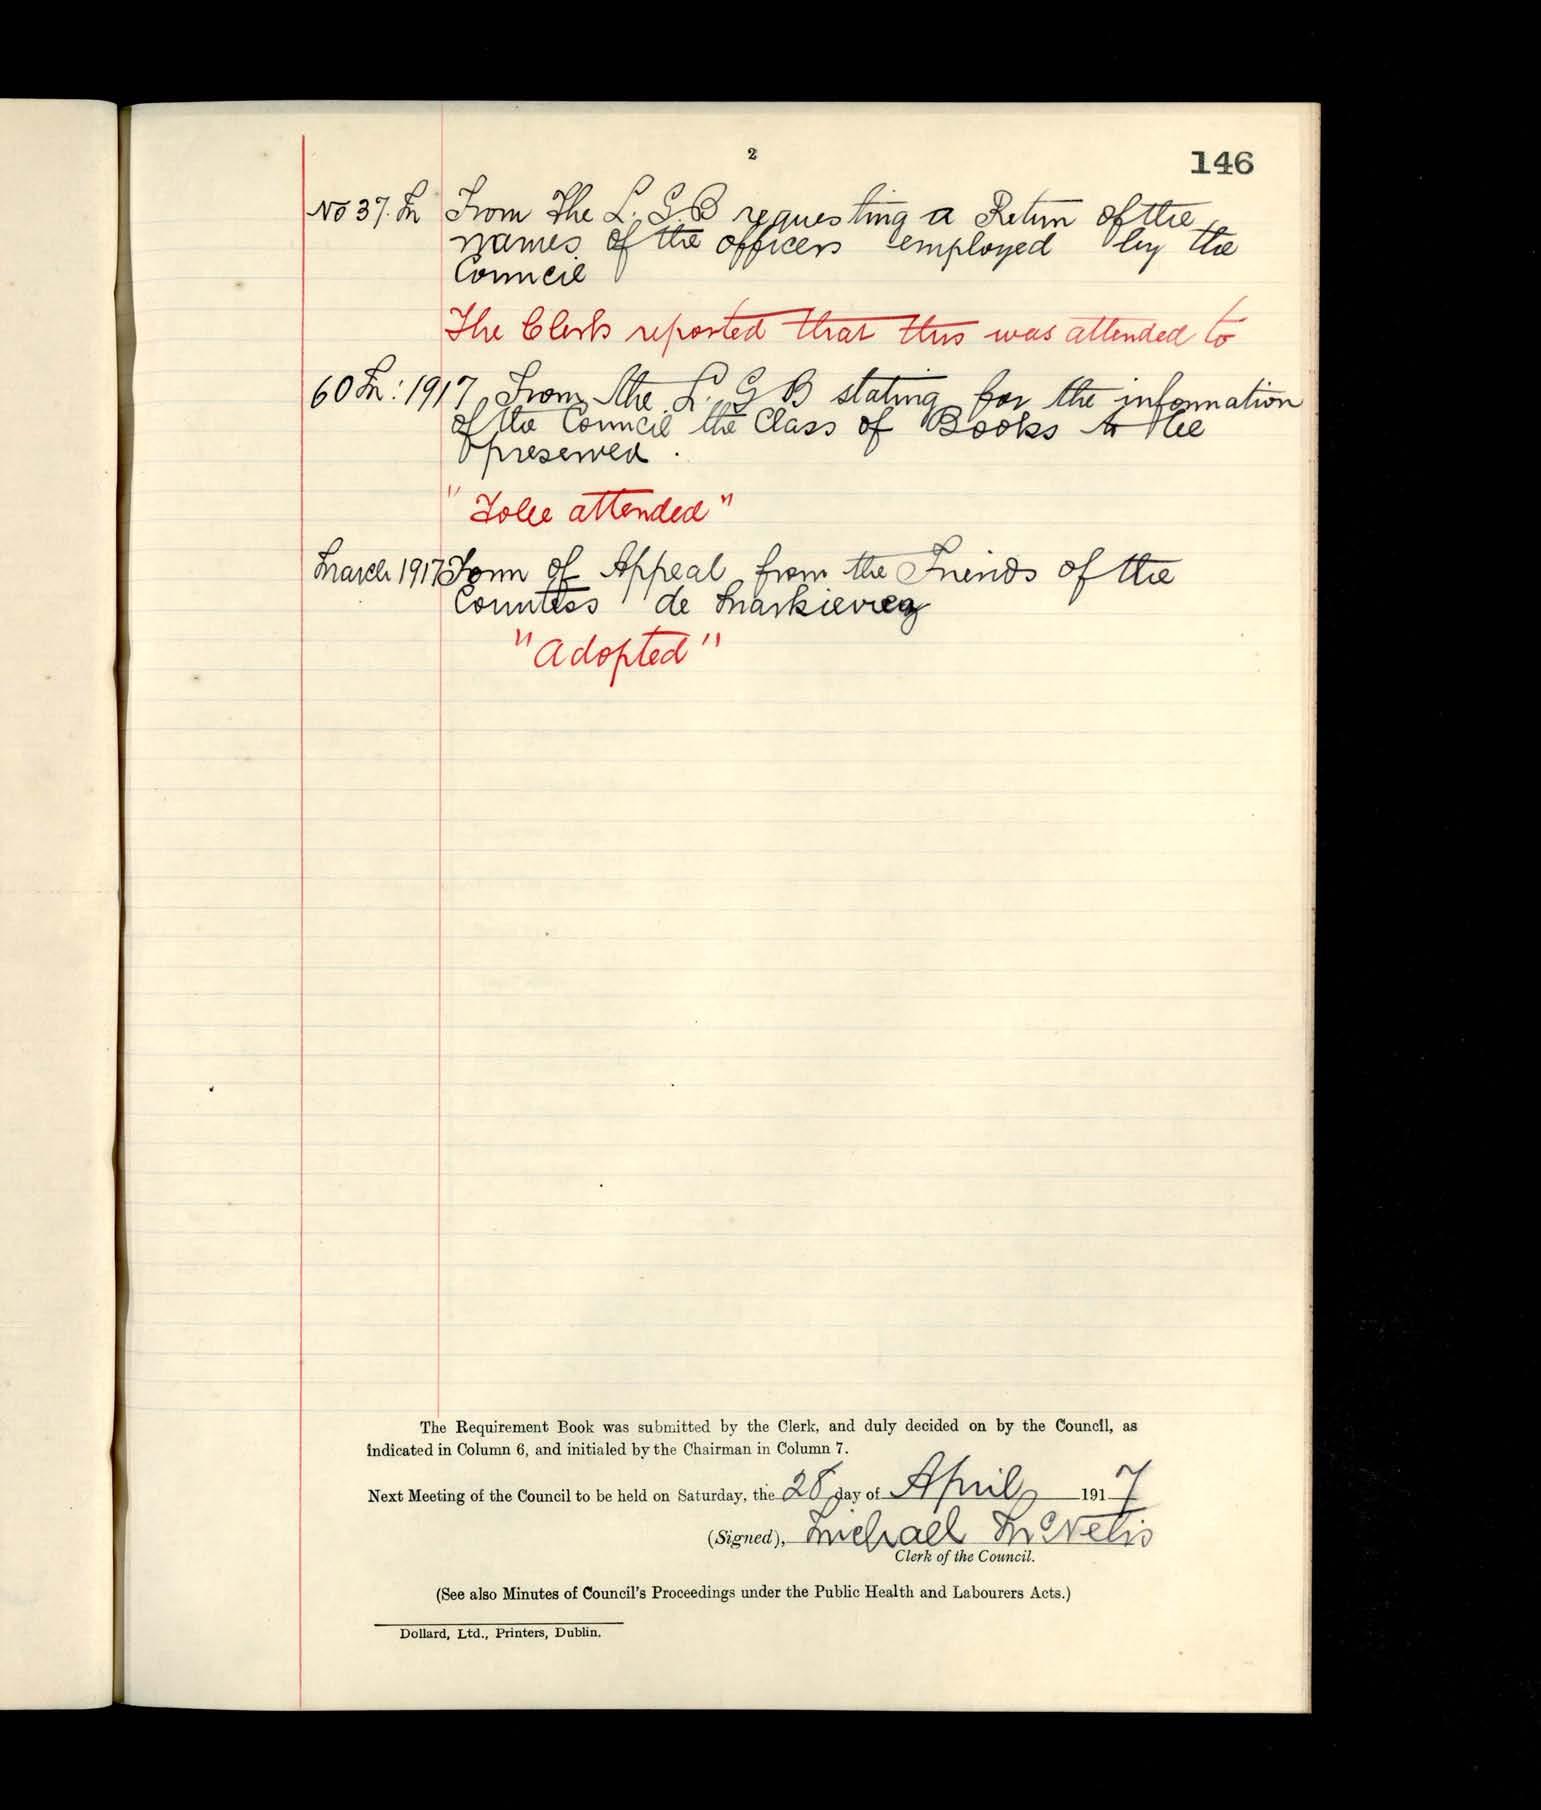 2
146
No 37. M From The L. G. B requesting a Return of the
names of the officers employed by the
Council
The Clerk reported that this was attended to
60 M: 1917 From the L. G B stating for the information
of the Council the Class of Books to be
preserved.
"To be attended"
March 1917 Form of Appeal from the Friends of the
Countess de Markievicz
"Adopted"
The Requirement Book was submitted by the Clerk, and duly decided on by the Council, as
indicated in Column 6, and initialed by the Chairman in Column 7.
Next Meeting of the Council to be held on Saturday, the 28 day of April 1917
(Signed), Michael McNelis
Clerk of the Council.
(See also Minutes of Council's Proceedings under the Public Health and Labourers Acts.)
Dollard, Ltd., Printers, Dublin.